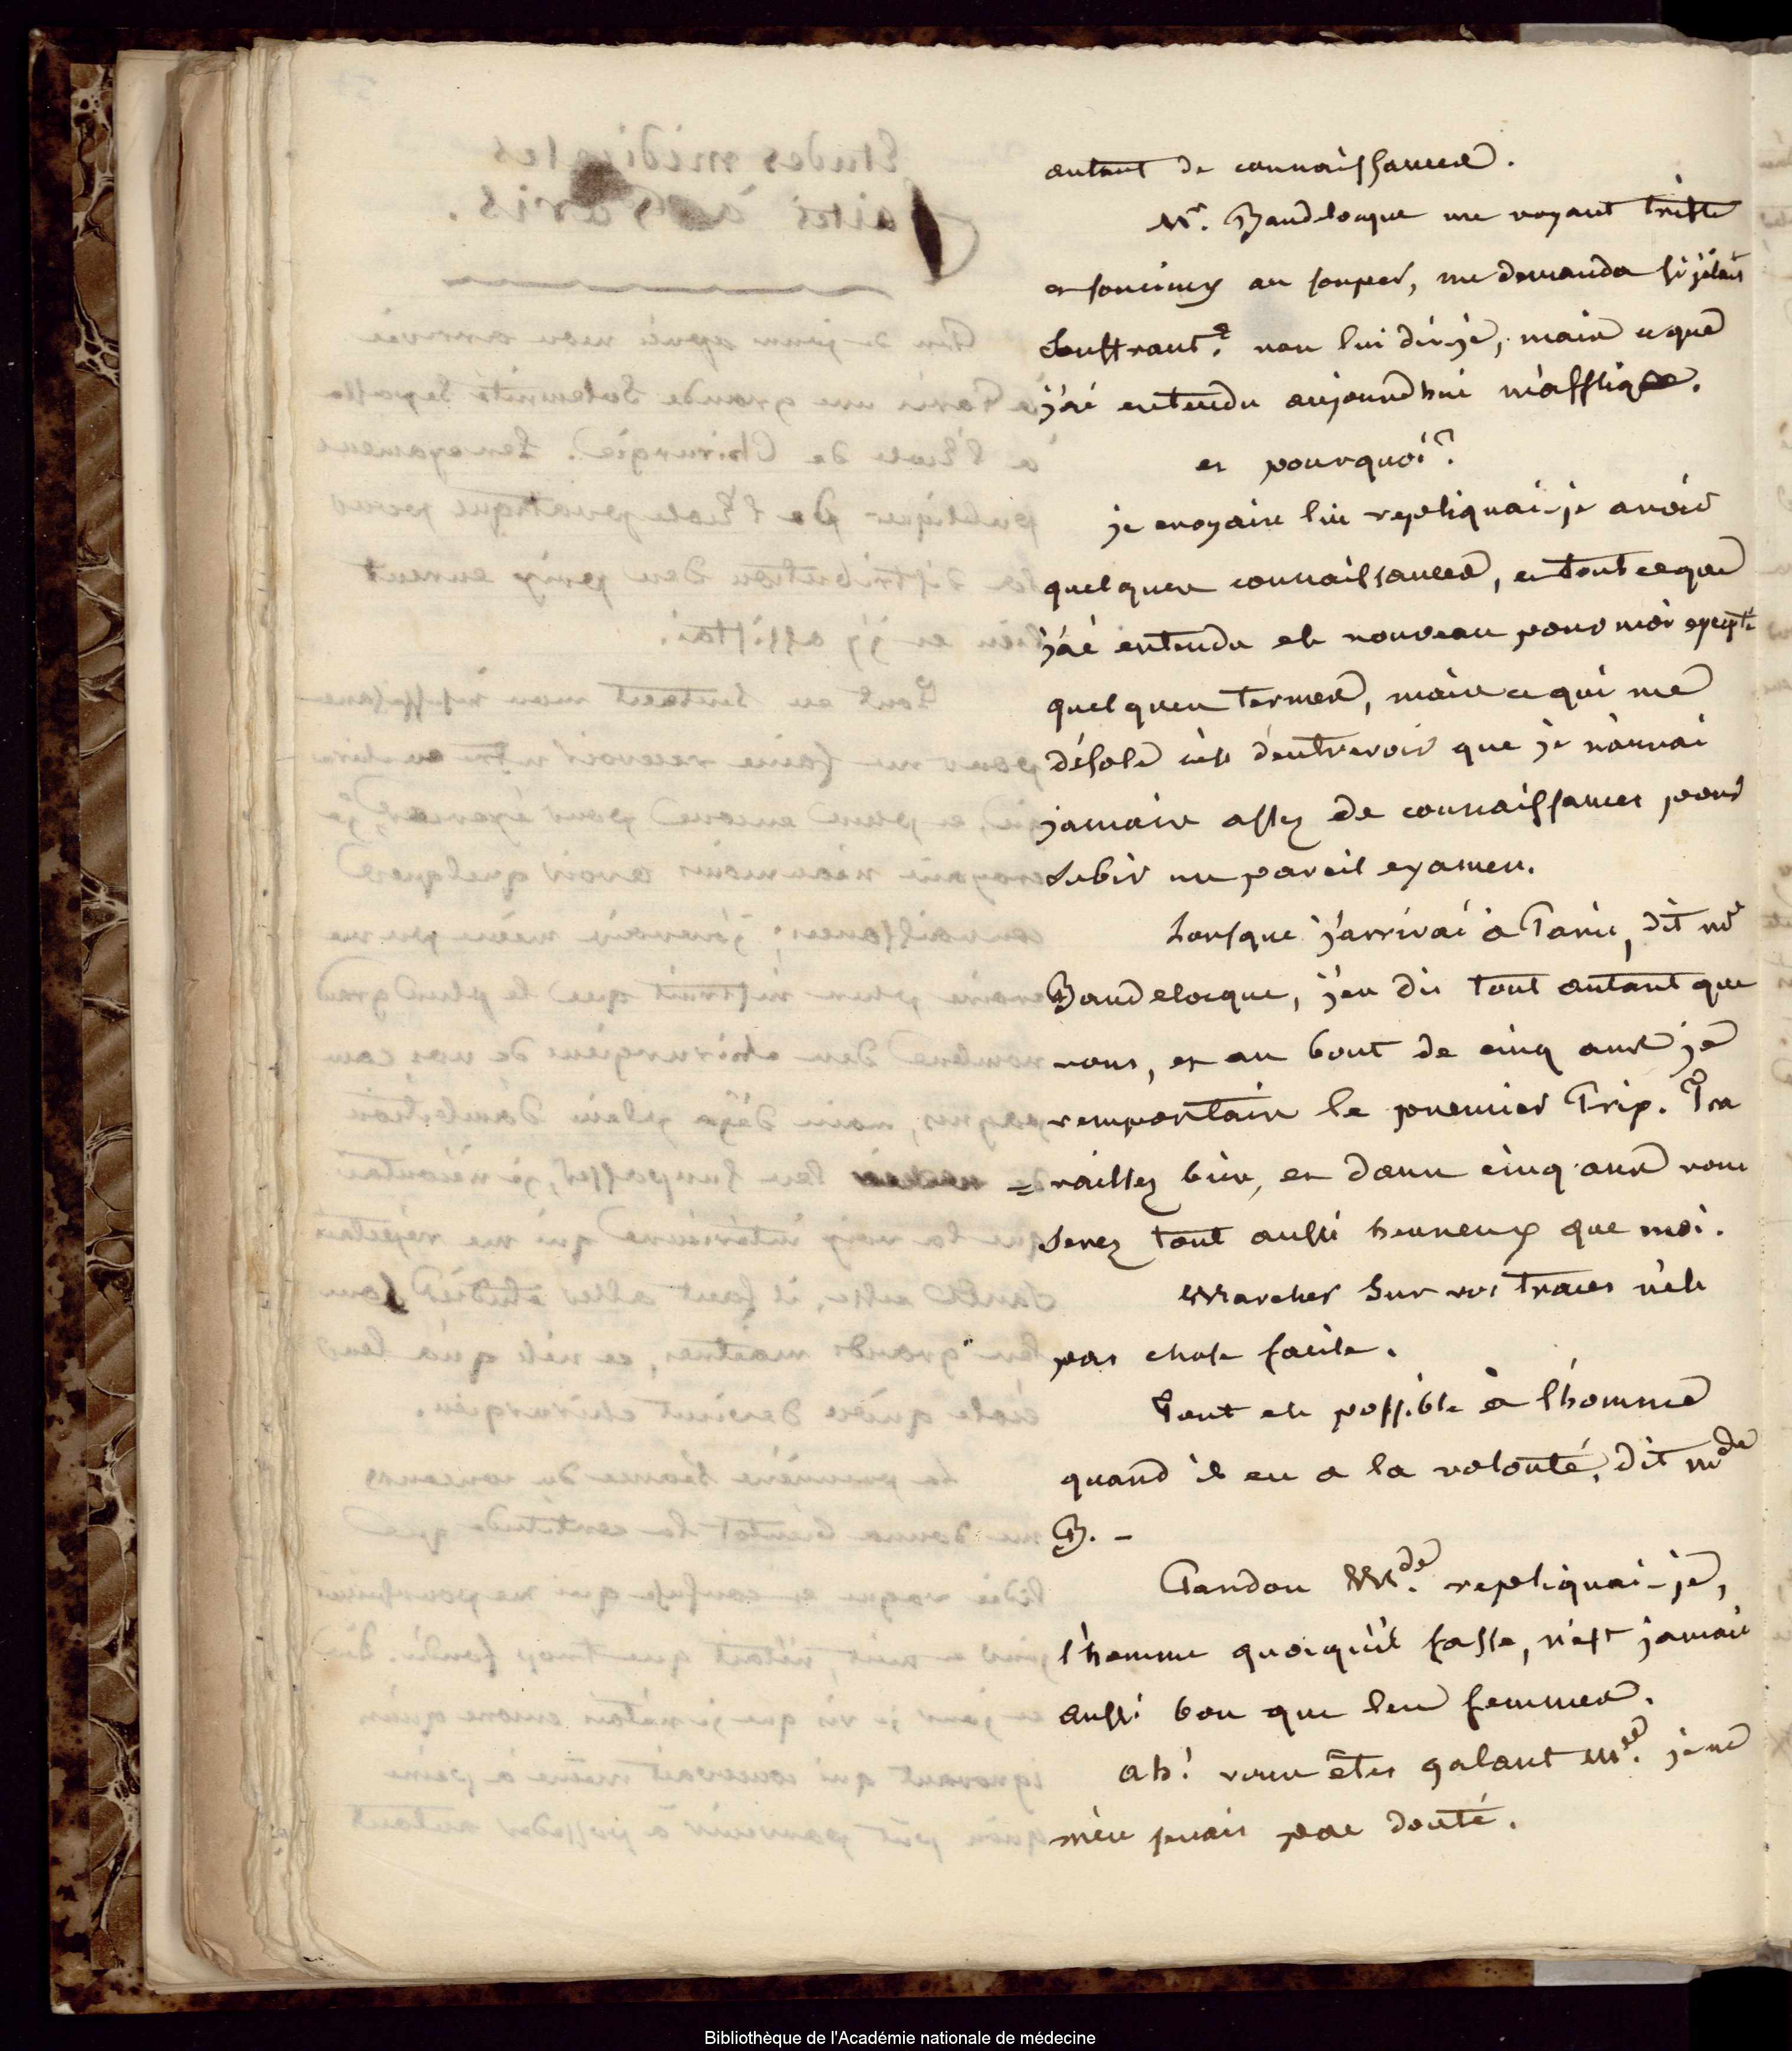 autant de connaissances.
Mr. Baudelocque me voyant triste
et soucieux au souper, me demanda si j'étais
souffrant? non lui dis-je, mais ce que
j'ai entendu aujourd'hui m'afflige.
et pourquoi?
je croyais lui repliquai-je avoir
quelques connaissances, et tout ce que
j'ai entendu est nouveau pour moi excepté
quelques termes, mais ce qui me
désole c'est d'entrevoir que je n'aurai
jamais assez de connaissances pour
subir un pareil examen.
Lorsque j'arrivai à Paris, dit mr
Baudelocque, j'en dis tout autant que
vous, et au bout de cinq ans je
remportais le premier Prix. Tra
=vaillez bien, et dans cinq ans vous
serez tout aussi heureux que moi.
Marcher sur vos traces n'est
pas chose facile.
Tout est possible à l'homme
quand il en a la volonté, dit mde
B. -
Pardon Mde. repliquai-je,
l'homme quoiqu'il fasse, n'est jamais
aussi bon que les femmes.
ah! vous êtes galant mr. je ne
m'en serais pas douté.
Bibliothèque de l'Académie nationale de médecine